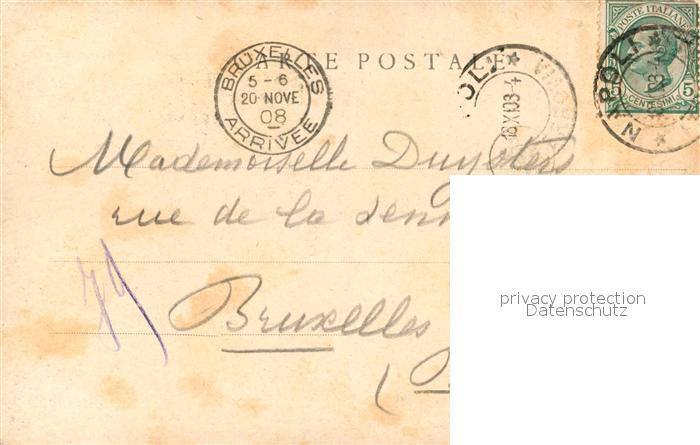 CARTE POSTALE
BRUXELLES
5-6
20 NOVE
08
ARRIVÉE
NAPOLI
POSTE ITALIANE
5 5
CENTESIMI
Mademoiselle Duysters
rue de la
Bruxelles
privacy protection
Datenschutz